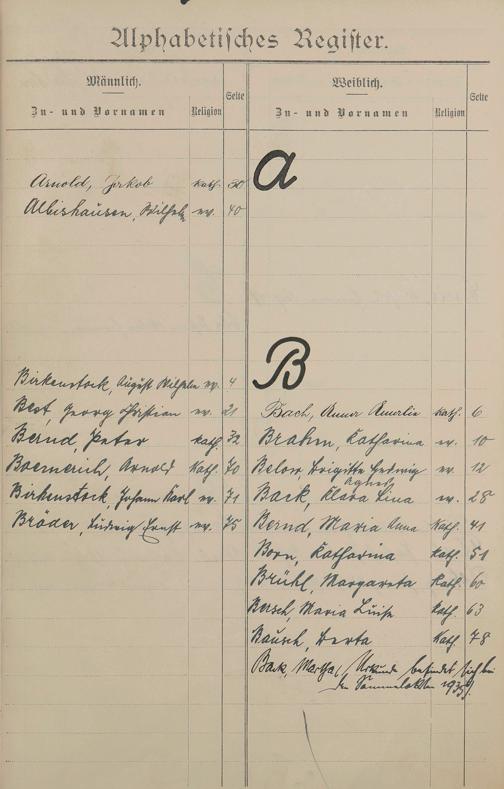 Alphabetisches Register.
Männlich.
Zu- und Vornamen Religion Seite
Weiblich.
Zu- und Vornamen Religion Seite
A
Arnold, Jakob kath. 30
Albishausen, Wilhelm ev. 40
B
Birkenstock, August Wilhelm ev. 4
Best, Georg Christian ev. 21
Bernd, Peter kath. 32
Boemerich, Arnold kath. 70
Birkenstock, Johann Karl ev. 71
Bröder, Ludwig Ernst ev. 75
Bach, Anna Amalie kath. 6
Brahm, Katharina ev. 10
Below, Brigitte Hedwig ev. 12
Agnes
Back, Klara Lina ev. 28
Bernd, Maria Anna kath. 41
Born, Katharina kath. 51
Brühl, Margareta kath. 60
Bersch, Maria Luise kath. 63
Bausch, Berta kath. 78
Back, Martha (Urkunde befindet sich bei
den Sammelakten 1935).